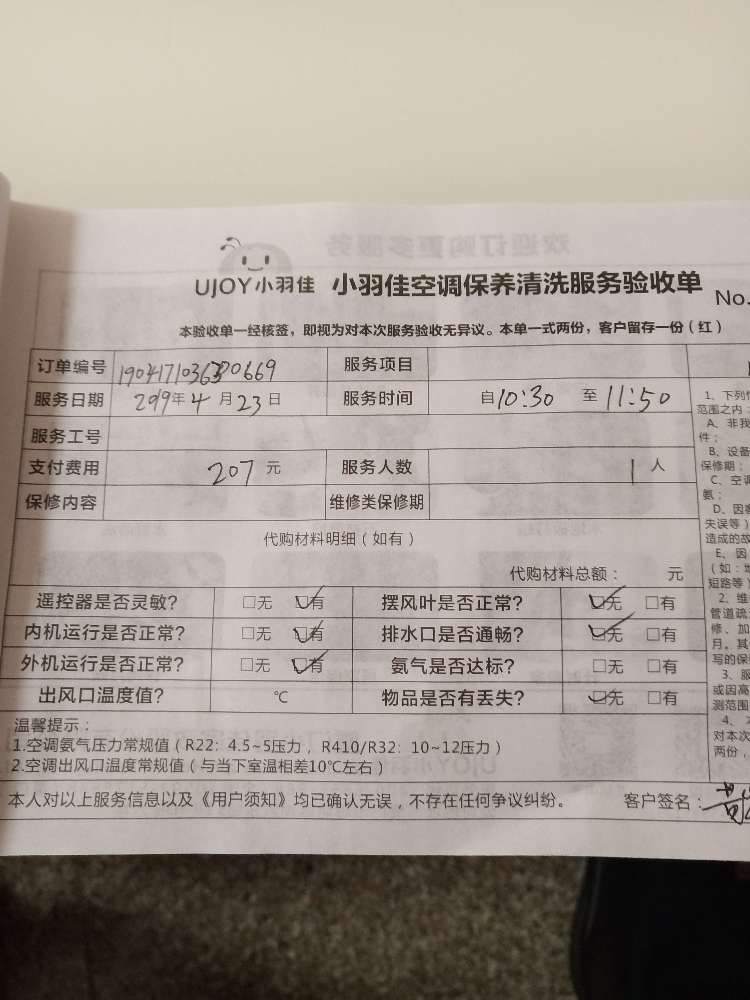 UJOY小羽佳 小羽佳空调保养清洗服务验收单 No.
本验收单一经核签，即视为对本次服务验收无异议。本单一式两份，客户留存一份（红）
订单编号 服务项目
服务日期 2019年4月23日 服务时间 自10:30 至11:50
服务工号
支付费用 207元 服务人数 1人
保修内容 维修类保修期
代购材料明细（如有）
代购材料总额： 元
遥控器是否灵敏? □无 □有 摆风叶是否正常? □无 □有
内机运行是否正常? □无 □有 排水口是否通畅? □无 □有
外机运行是否正常? □无 □有 氨气是否达标? □无 □有
出风口温度值? ℃ 物品是否有丢失? □无 □有
温馨提示：
1.空调氨气压力常规值（R22：4.5~5压力，R410/R32：10~12压力）
2.空调出风口温度常规值（与当下室温相差10℃左右）
本人对以上服务信息以及《用户须知》均已确认无误，不存在任何争议纠纷。 客户签名：
1、下列
范围之内：
A、非我
件；
B、设备
保修期；
C、空调
氨；
D、因
失误等）
造成的故
E、因
（如：
短路等）
2、维
管道疏
修、加
月。其
写的保
3、服
或因高
测范围
4、
对本次
两份，